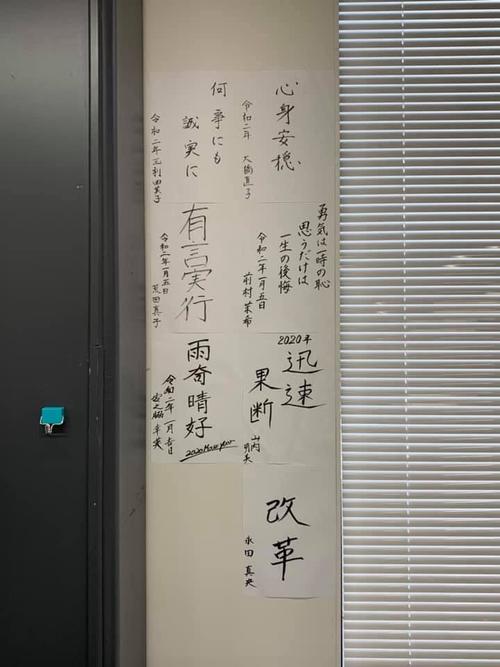 心身安穏
令和二年 大橋直子
何事にも
誠実に
令和二年
勇気は一時の恥
思うだけは
一生の後悔
令和二年一月五日
前村茉希
有言実行
令和二年一月五日
荒田真子
2020年
迅速
果断
山内
雨奇晴好
2020 New Year
令和二年一月吉日
改革
永田 真央